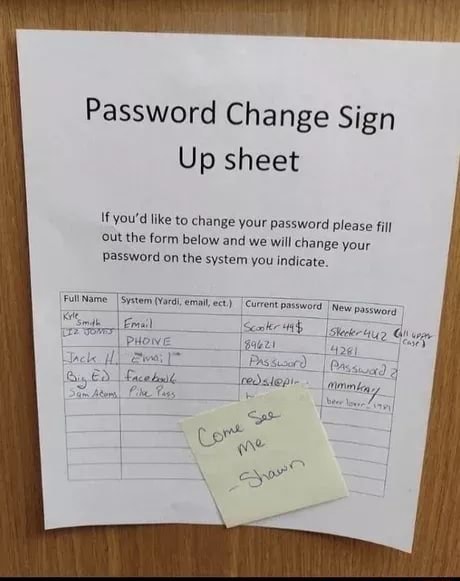 Password Change Sign
Up sheet
If you'd like to change your password please fill
out the form below and we will change your
password on the system you indicate.
Full Name System (Yardi, email, ect.) Current password New password
Kyle Smith Email Scooter 44$ Skeeter 442 (all upper case)
LIZ JONES PHONE 89621 4281
Jack H. Email Password Password 2
Big Ed facebook
Sam Adams Pike Pass
Come See
Me
-Shawn